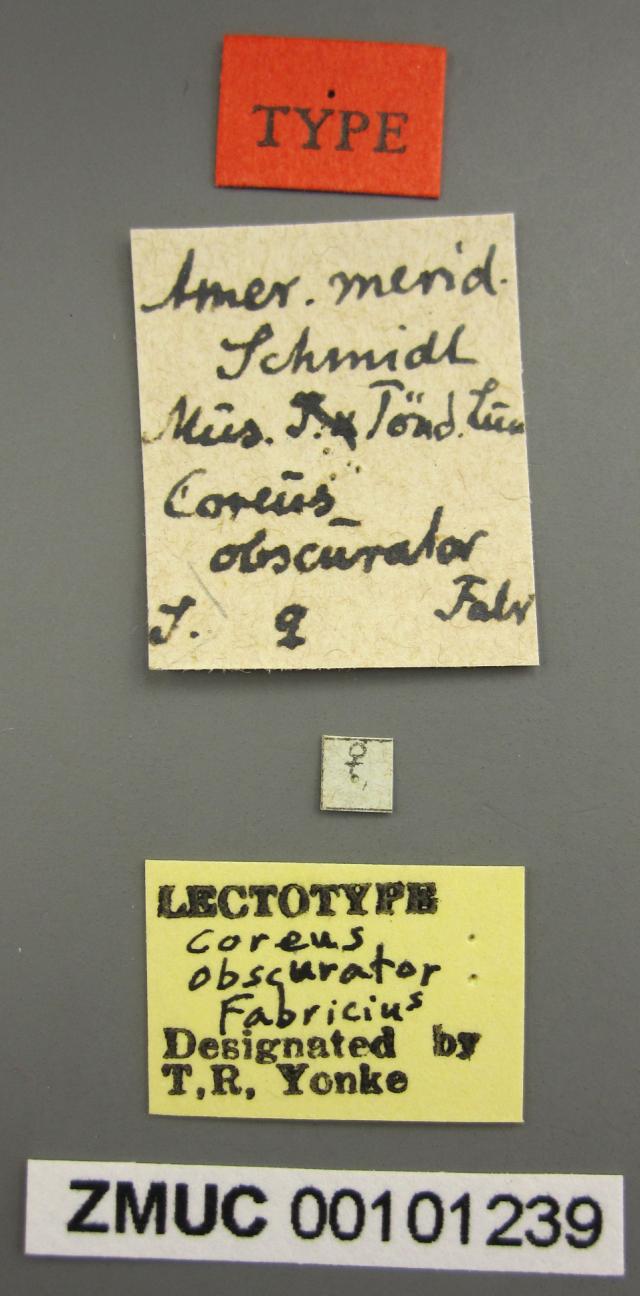 TYPE
Amer. merid.
Schmidt
Mus. T. Lund
Coreus
obscurator
Fabr
♀
LECTOTYPE
Coreus
obscurator
Fabricius
Designated by
T.R. Yonke
ZMUC 00101239